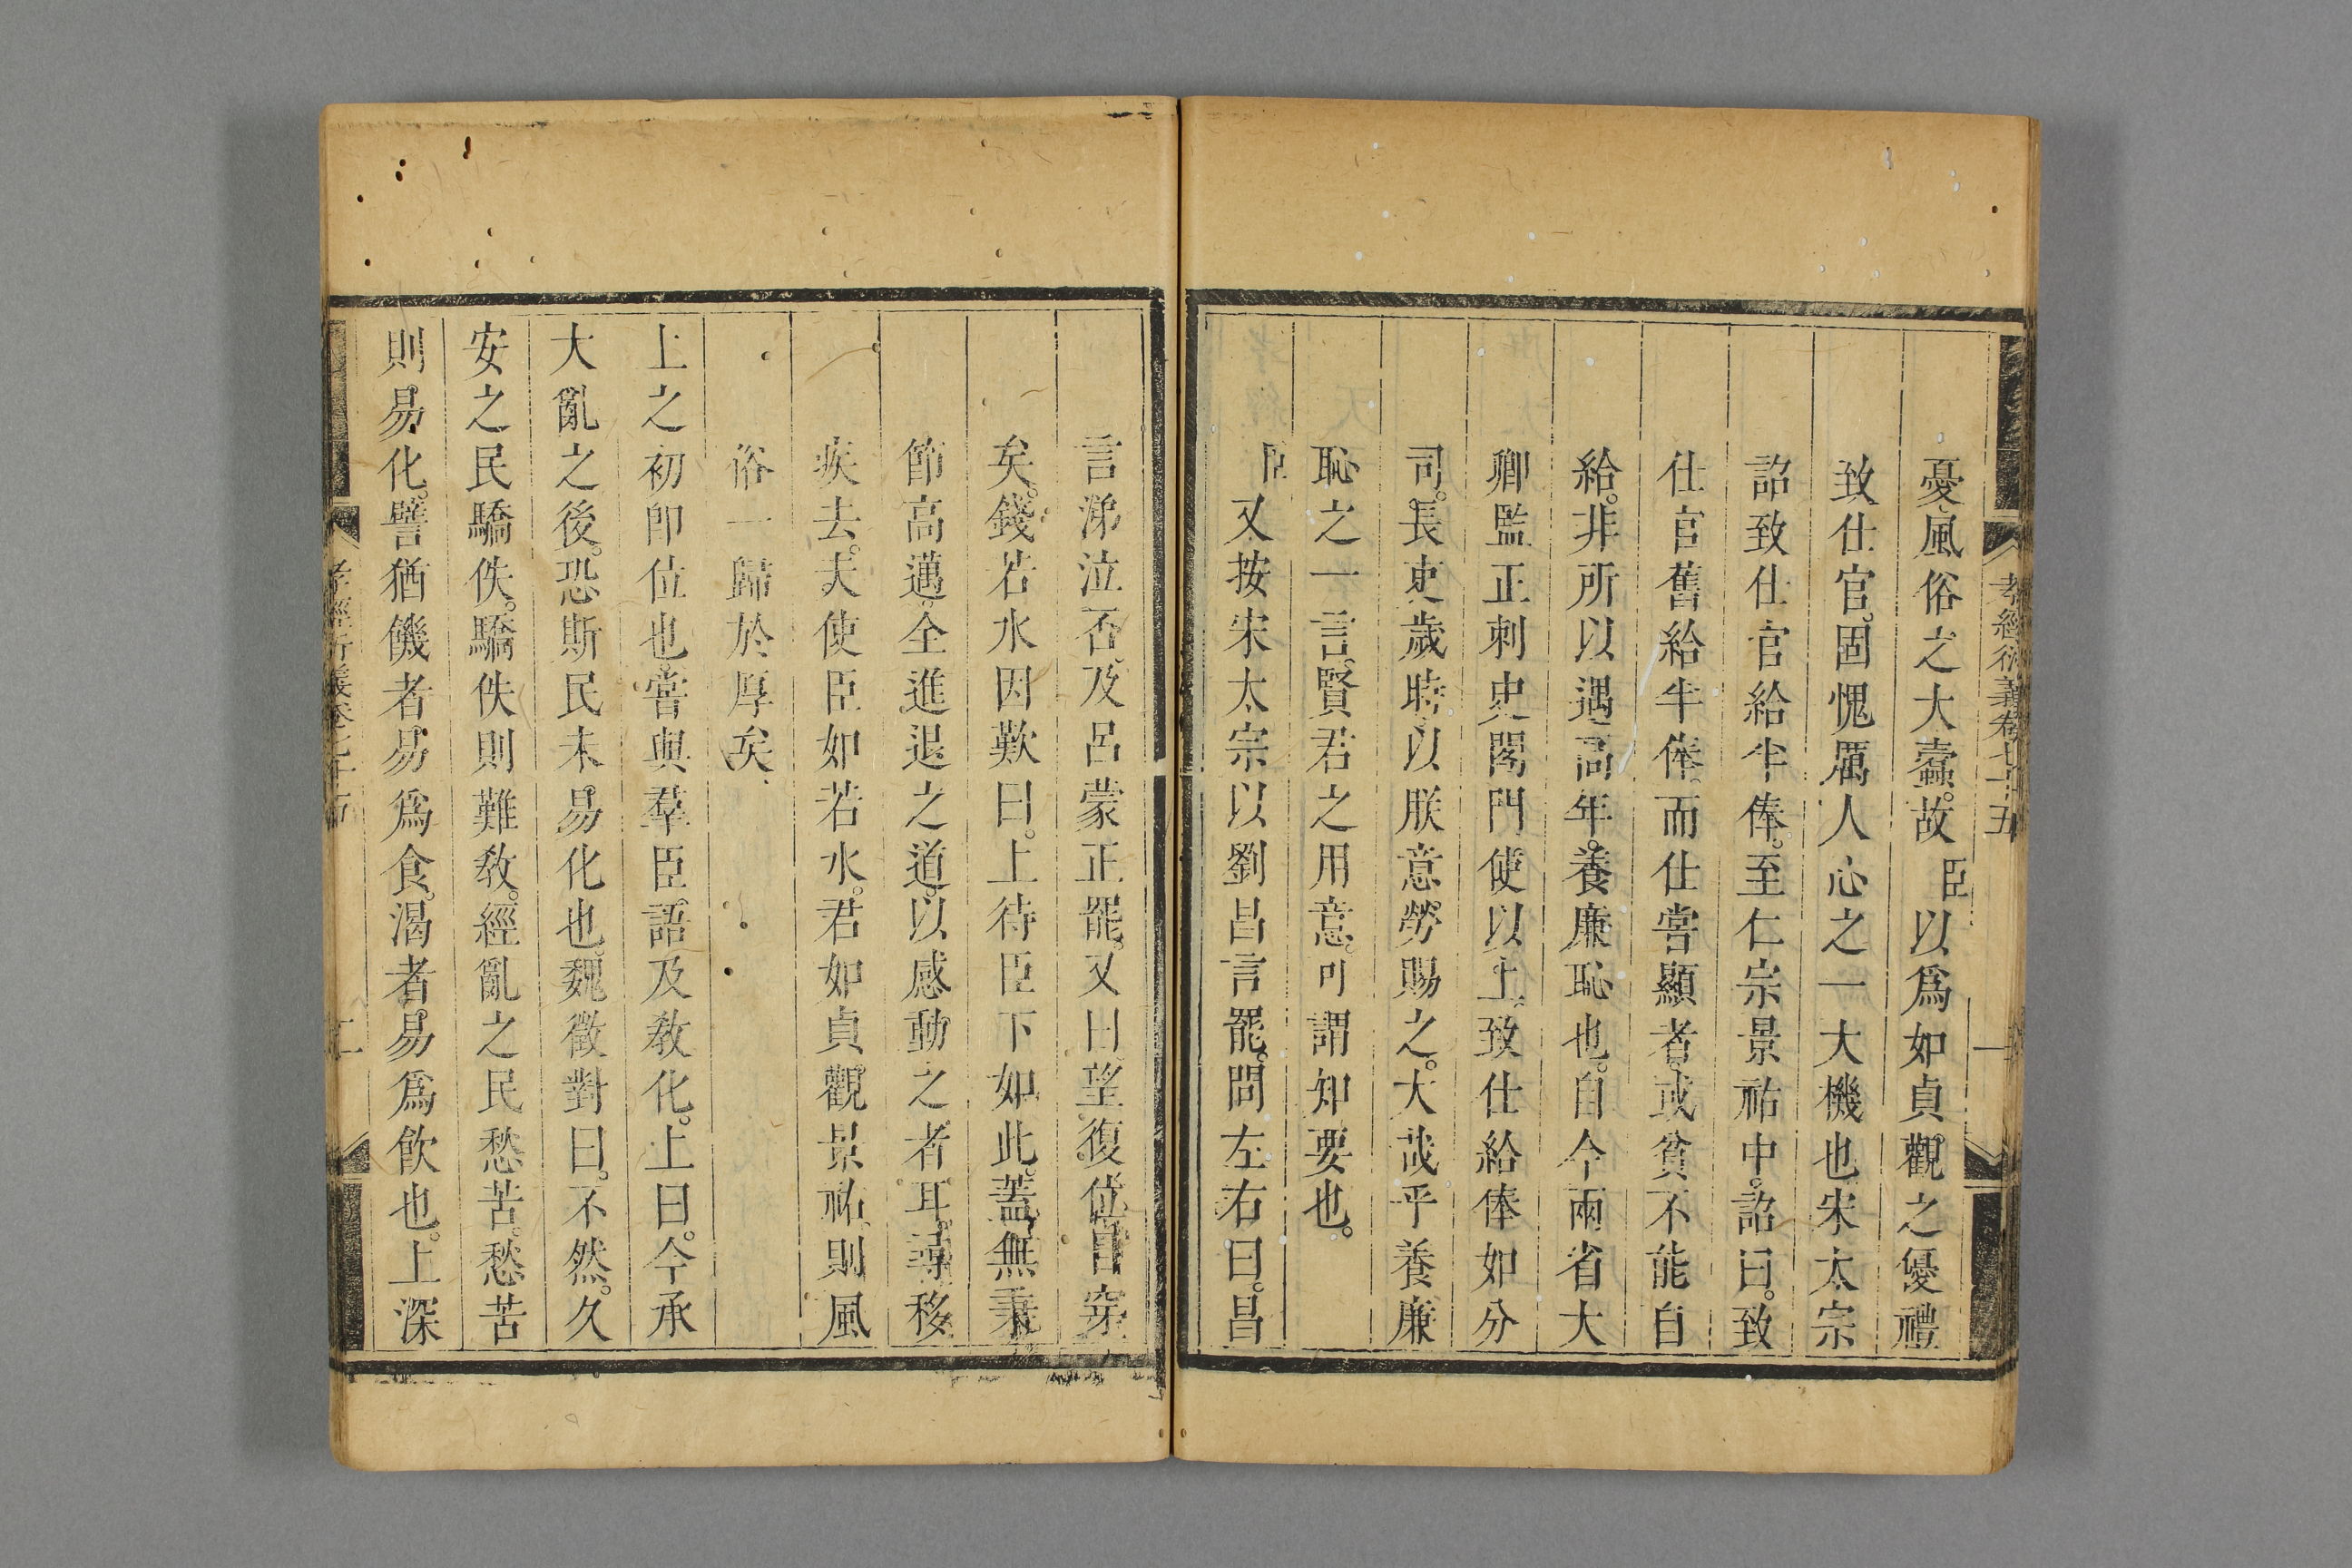 孝經衍義卷七十五
一
憂風俗之大蠹故臣以爲如貞觀之優禮
致仕官。固愧厲人心之一大機也宋太宗
詔致仕官給半俸。至仁宗景祐中。詔曰。致
仕官舊給半俸。而仕嘗顯者。或貧不能自
給。非所以遇高年。養廉恥也。自今兩省大
卿監正刺史閤門使以上。致仕給俸如分
司。長吏歲時以朕意。勞賜之。大哉乎養廉
恥之一言。賢君之用意。可謂知要也。
臣又按宋太宗以劉昌言罷。問左右曰。昌
言涕泣否。及呂蒙正罷。又曰望復位目穿
矣。錢若水因歎曰。上待臣下如此。蓋無秉
節高邁。全進退之道。以感動之者耳。尋移
疾去。夫使臣如若水。君如貞觀景祐。則風
俗一歸於厚矣
上之初即位也嘗與羣臣語及敎化。上曰。今承
大亂之後。恐斯民未易化也。魏徵對曰。不然。久
安之民驕佚。驕佚則難敎。經亂之民愁苦。愁苦
則易化。譬猶饑者易爲食。渴者易爲飮也。上深
孝經衍義卷七十五
二